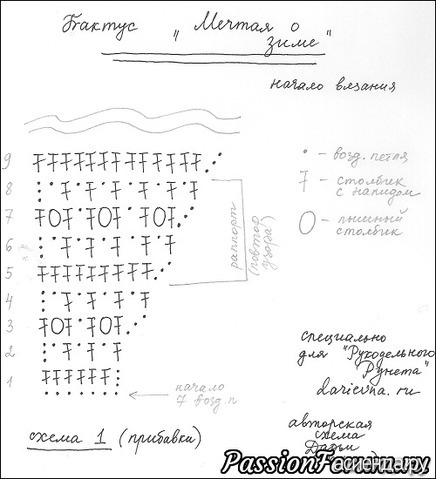 Бактус „Мечтая о
зиме"
начало вязания
9
8
7
6
5
4
3
2
1
раппорт
(повтор
узора)
• - возд. петля
- столбик
с накидом
- пышный
столбик
начало
7 возд. п
схема 1 (прибавки)
специально
для "Рукодельного
Рунета"
darievna.ru
авторская
схема
Дарьи
PassionForum.ru